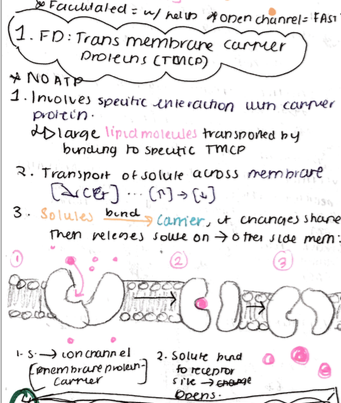 * Facilitated = w/ help * open channel = FAST
1. FD: Trans membrane carrier
Proteins (TMCP)
* NO ATP
1. Involves specific interaction with carrier
protein.
↳ large lipid molecules transported by
binding to specific TMCP
2. Transport of solute across membrane
... [↑] → [↓]
3. Solutes bind → carrier, it changes shape
Then releases solute on → other side mem:
1 2 3
1. S. → ion channel
[membrane protein-]
carrier
2. Solute bind
to receptor
site → change
Opens.